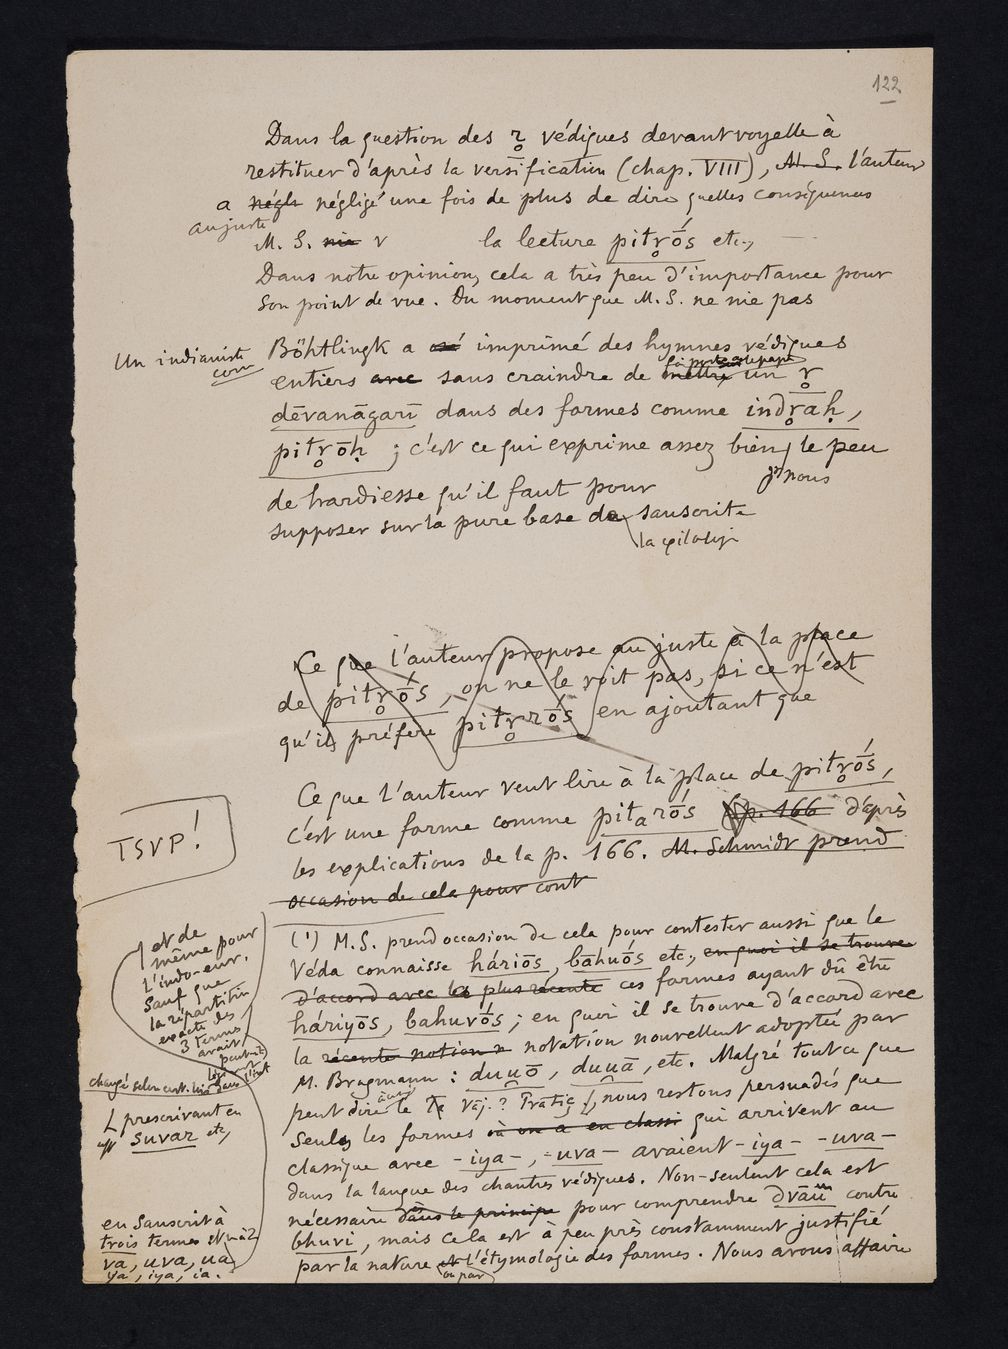 122
Dans la question des r̥ védiques devant voyelle à
restituer d'après la versification (chap. VIII), M. S. l'auteur
a négl négligé une fois de plus de dire quelles conséquences
au juste
M. S. nie r la lecture pitr̥ṓs etc.,
Dans notre opinion, cela a très peu d'importance pour
son point de vue. Du moment que M. S. ne nie pas
Un indianiste
com
Böhtlingk a imprimé des hymnes védiques
entiers avec sans craindre de mettre un r̥
dēvanāgarī dans des formes comme indr̥aḥ,
pitr̥ōḥ ; c'est ce qui exprime assez bien le peu
pr nous
de hardiesse qu'il faut pour
supposer sur la pure base de sanscrite
la
Ce que l'auteur propose au juste à la place
de pitr̥ṓs, on ne le voit pas, si ce n'est
qu'il préfère pitr̥rṓs en ajoutant que
Ce que l'auteur veut lire à la place de pitr̥ṓs,
c'est une forme comme pitₐrṓs (p. 166 d'après
les explications de la p. 166. M. Schmidt prend
occasion de cela pour cont
TSVP!
(¹) M.S. prend occasion de cela pour contester aussi que le
Véda connaisse háriōs, bāhúōs etc., en quoi il se trouve
d'accord avec la plus récente ces formes ayant dû être
háriyōs, bahuvṓs ; en quoi il se trouve d'accord avec
la récente notion n notation nouvellemt adoptée par
M. Brugmann : duu̯ō, duu̯ā, etc. Malgré tout ce que
peut dire le Vāj. ? Prātiç., nous restons persuadés que
Seules les formes où on a en classi qui arrivent au
classique avec -iya-, -uva- avaient -iya- -uva-
dans la langue des chantres védiques. Non-seulemt cela est
nécessaire dans le principe pour comprendre contre
bhuvi, mais cela est à peu près constamment justifié
par la nature et l'étymologie des formes. Nous avons affaire
ou par
et de
même pour
l'indo-eur.
sauf que
la répartition
exacte des
3 termes
avait
prescrivant en
suvar etc,
en sanscrit à
trois termes
va, uva, ua
ya, iya, ia.